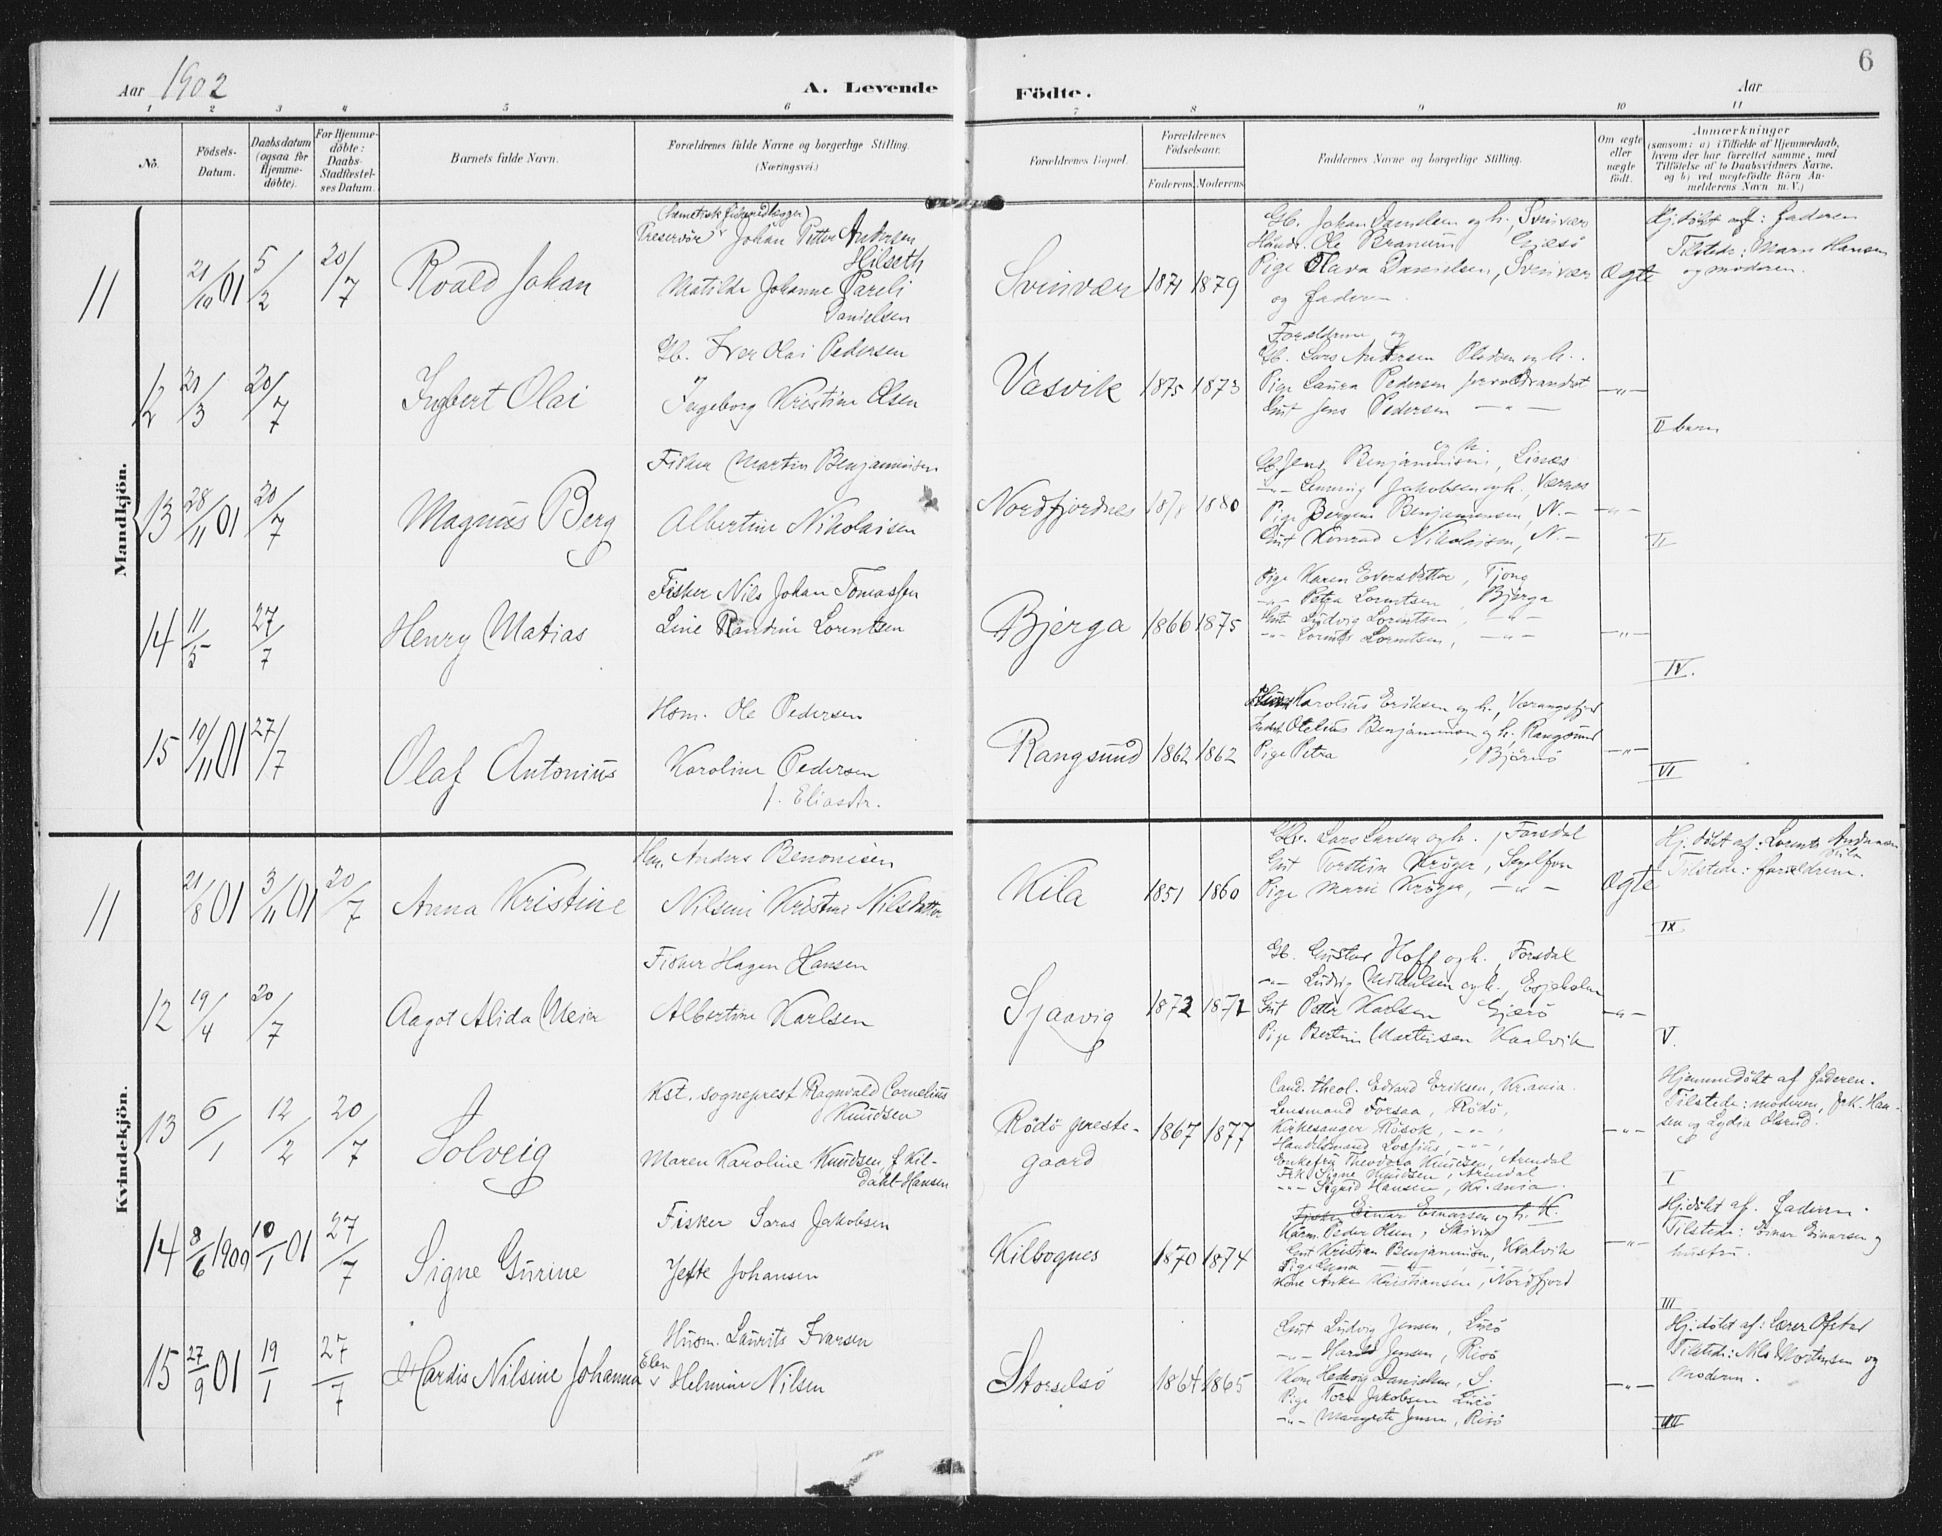 6
Aar 1902
A. Levende Födte.
Aar
1 2 3 4 5 6 7 8 9 10 11
No.
Födsels-
Datum.
Daabsdatum
(ogsaa for
Hjemme-
döbte).
For Hjemme-
döbte:
Daabs-
Stadfæstel-
ses Datum.
Barnets fulde Navn.
Forældrenes fulde Navne og borgerlige Stilling.
(Næringsvei.)
Forældrenes Bopæl.
Forældrenes
Födselsaar.
Faderens Moderens
Faddernes Navne og borgerlige Stilling.
Om ægte
eller
uægte
födt.
Anmærkninger
(saasom: a) i Tilfælde af Hjemmedaab,
hvem der har forrettet samme, med
Tilföielse af to Daabsvidners Navne.
og b) ved uægtefödte Börn An-
melderens Navn m. V.)
Mandkjön.
11 21/10 01 5/2 20/7 Roald Johan
Preservör Johan Petter Andersen
Hilseth
Matilde Johanne Pareli
Danielsen
Svinvær 1871 1879
Gb. Johan Danielsen og h., Svinvær
Handr. Ole Branum Gjæsö
Pige Olava Danielsen, Svinvær
og Faderen.
Ægte
Hj.döbt af: Faderen
Tilstede: Marie Hansen
og moderen.
12 21/3 20/7 Ingbert Olai
Gb. Iver Olai Pedersen
Ingeborg Kristine Olsen
Vasvik 1875 1873
Forældrene og
Gb. Lars Andersen og h.
Pige Laura Pedersen
Gut Jens Pedersen —"—
—"—
II barn
13 28/11 01 20/7 Magnus Berg
Fisker Martin Benjaminsen
Albertine Nikolaisen
Nordfjordnes 1880
Gb. Jens Benjaminsen og h., Linæs
—"— Jakobsen og h., Værnes
Pige Bergine Benjaminsen, N.—
Gut Konrad Nikolaisen, N.—
—"—
II
14 11/5 27/7 Henry Matias
Fisker Nils Johan Tomassen
Line Randine Lorentsen
Bjerga 1866 1875
Pige Karen Evensdatter, Tjong
—"— Petra Lorentsen, Bjerga
Gut Ludvig Lorentsen, —"—
—"— Lorents Lorentsen, —"—
—"—
IV.
15 10/11 01 27/7 Olaf Antonius
Hsm. Ole Pedersen
Karoline Pedersen
f. Eliasdtr.
Rangsund 1862 1862
Karolius Eriksen og h., Værangfjord
Otelius Benjaminsen og h. Rangsund
Pige Petra , Bjærnö
—"—
VI
Kvindekjön.
11 21/8 01 3/11 01 20/7 Anna Kristine
Hsm. Anders Benonisen
Nilsine Kristine Nilsdatter
Kila 1851 1860
Gbr. Lars Larsen og h., Forsdal
Gut Torstein Kröger, Segelfor
Pige Marie Kröger, —"—
Ægte
Hj.döbt af: Lorents Andersen
Kila
Tilstede: forældrene.
IX
12 19/4 20/7 Aagot Alida Meier
Fisker Hagen Hansen
Albertine Karlsen
Sjaavig 1872 1871
Gb. Gustav Hoff og h., Forsdal
—"— Ludvig Mikalsen og h., Esjeholmen
Gut Peter Karlsen Gjerö
Pige Bertine Martinsen Kaalvik
—"—
V.
13 6/1 12/2 20/7 Solveig
Kst. sogneprest Ragnvald Cornelius
Knudsen
Maren Karoline Knudsen, f. Kil-
dahl Hansen
Rödö preste-
gaard
1867 1877
Cand. theol. Edvard Eriksen, Kr.ania.
Lensmand Forsaa, Rödö,
Kirkesanger Rösok, —"—
Handelsmand Losjius, —"—
Enkefru Theodora Knudsen, Arendal
Frk. Signe Knudsen, Arendal
—"— Sigrid Hansen, Kr.ania.
—"—
Hjemmedöbt af faderen.
Tilstede: moderen, frk. Han-
sen og Lydia Olsrud.
I
14 8/6 1900 10/1 01 27/7 Signe Gurine
Fisker Saras Jakobsen
Jefte Johansen
Kilbognes 1870 1874
Fisker Einar Einarsen og h. K.
Kårm. Peder Olsen, Skivik
Gut Kristian Benjaminsen, Kvalvik
Pige Anna —"—
Kone Anken Kristiansen, Nordfjord
—"—
Hj.döbt af. faderen.
Tilstede: Einar Einarsen og
hustru.
III
15 27/9 01 19/1 27/7 Hardis Nilsine Johanna
Husm. Laurits Ivarsen
Elen Helmine Nilsen
Storselsö 1864 1865
Gut Ludvig Jensen, Lurö
—"— Harald Jensen, Risö
Kone Hedevig Danielsen, S.
Pige Tora Jakobsen Lurö
—"— Margrete Jensen, Risö
—"—
Hj.döbt af: Lærer Ofstad
Tilstede: Nils Mortensen og
Moderen.